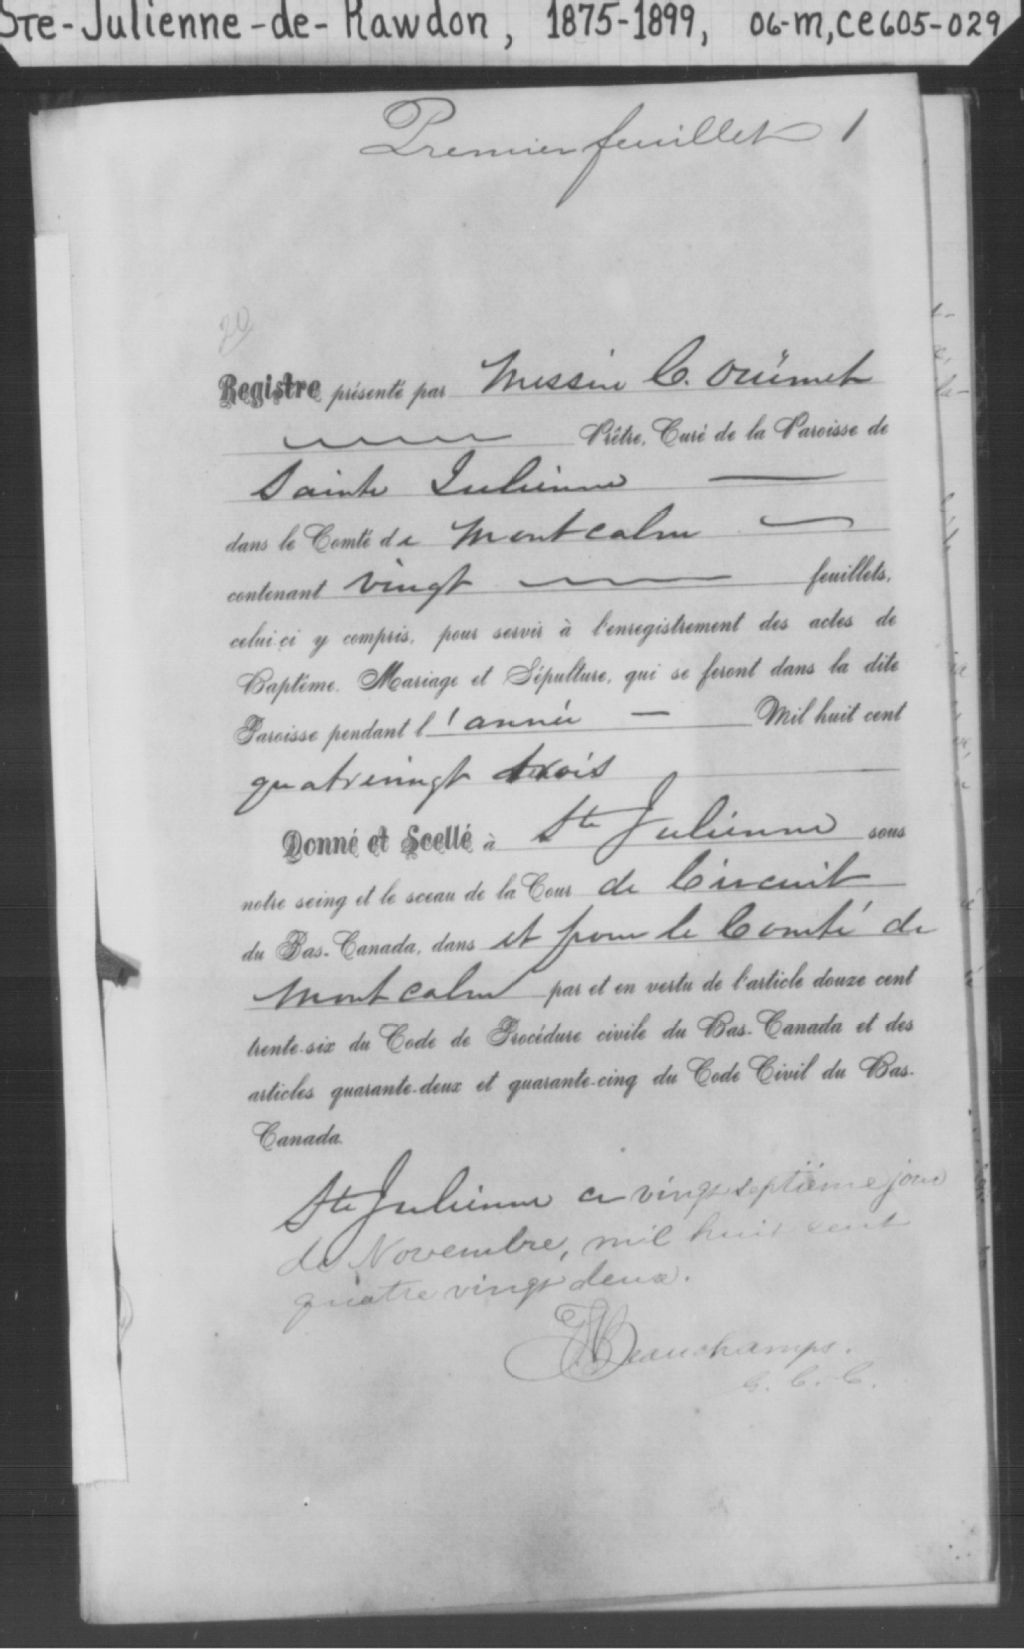 Ste-Julienne-de-Rawdon, 1875-1899, 06-M, CE605-029
Premier feuillet 1
20
Registre présenté par Messire C. Ouimet
Prêtre, Curé de la Paroisse de
Sainte Julienne
dans le Comté de Montcalm
contenant vingt feuillets,
celui-ci y compris, pour servir à l'enregistrement des actes de
Baptême, Mariage et Sépulture, qui se feront dans la dite
Paroisse pendant l'année Mil huit cent
quatrevingt trois
Donné et Scellé à Ste Julienne sous
notre seing et le sceau de la Cour de Circuit
du Bas-Canada, dans et pour le Comté de
Montcalm par et en vertu de l'article douze cent
trente-six du Code de Procédure civile du Bas-Canada et des
articles quarante-deux et quarante-cinq du Code Civil du Bas-
Canada.
Ste Julienne ce vingt septième jour
de Novembre, mil huit cent
quatre vingt deux.
Beauchamps.
C. C. C.